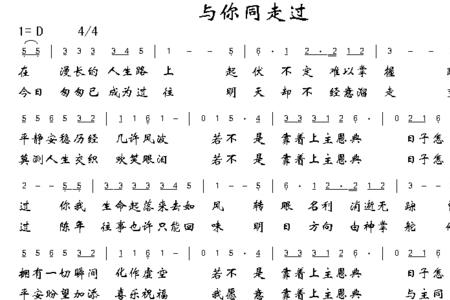 与你同走过
1=D 4/4
5 5 | 3 3 3 3 4 5 | 1 - - 5 | 6 · 1 2 · 2 1 2 | 3 - -
在 漫长的 人生路 上 起 伏 不 定 难以掌 握
今日 匆匆已 成为过 往 明 天 却 不 经意溜 走
5 1 5 6 5 1 2 | 3 3 2 1 6 1 | 0 1 5 · 4 | 3 4 3 2 1 | 0 2 1 6
平静安稳历经 几许风波 若不 是 靠着上主恩典 日子怎
莫测人生交织 欢笑眼泪 若不 是 靠着上主恩典 日子怎
2 - - 5 5 | 3 3 3 3 3 4 5 | 1 - - 5 | 6 · 1 2 · 2 1 | 2 - -
过 你我 生命起落来去如 风 转 眼 名利 消逝无 踪
过 陈年 往事也许只能回 味 明 日 方向 由神掌 舵
5 1 5 6 5 1 2 | 3 3 2 1 6 1 | 0 1 5 · 4 | 3 4 3 2 1 | 0 2 1 6
拥有一切瞬间 化作虚空 若不 是 靠着上主恩典 日子怎
平安盼望加添 喜乐祝福 我愿 意 靠着上主恩典 与主同